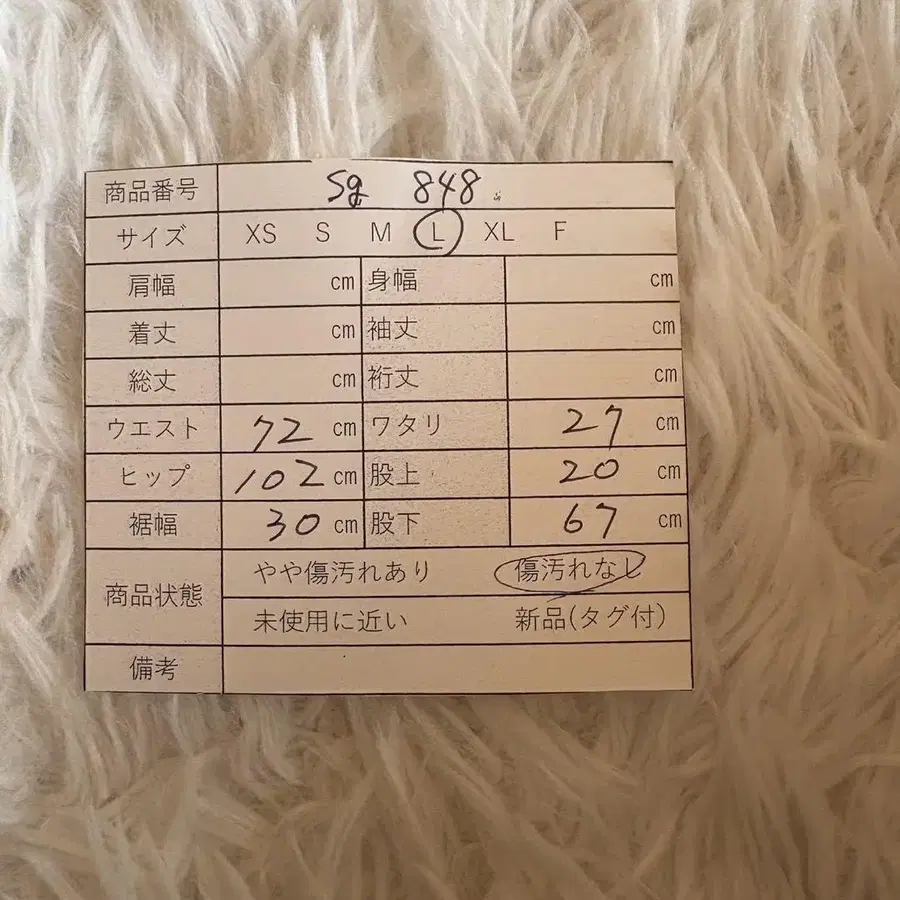 商品番号 Sg 848
サイズ XS S M L XL F
肩幅 cm 身幅 cm
着丈 cm 袖丈 cm
総丈 cm 裄丈 cm
ウエスト 72 cm ワタリ 27 cm
ヒップ 102 cm 股上 20 cm
裾幅 30 cm 股下 67 cm
商品状態 やや傷汚れあり 傷汚れなし
未使用に近い 新品(タグ付)
備考